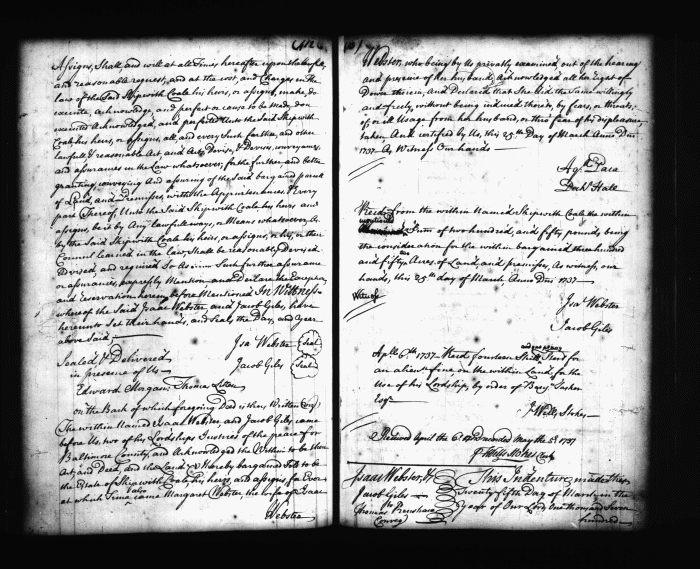 Assigns, Shall and will at all Times hereafter upon the
and reasonable request, and at the cost, and Charges in the
law of the Said Skipwith Coale his heirs, or assigns, make, do
execute, acknowledge, and perfect or cause to be made, don
executed Acknowledged, and perfected Unto the Said Skipwith
Coale his heirs, or assigns, all, and every Such further, and other
lawfull & reasonable Act, and Acts, Devise, & Devises, conveyances
and assurances in the Law whatsoever, for the further, and better
granting, conveying And assuring of the Said bargained parcell
of Land, and Premisses, with the Appurtenances, & Every
part Thereof Unto the Said Skipwith Coale his heirs and
assigns, be it by Any lawfull ways, or Means whatsoever As
by the Said Skipwith Coale his heirs, or assigns, or his, or their
Councel learned in the law, Shall be reasonably Devised
Advised, and required So As in Such further assurance
or assurances, expressly Mention and Declare the Exception
and Reservation herein before Mentioned In Wittness
whereof the Said Isaac Webster, and Jacob Giles, have
hereunto Set their hands, and Seals the Day, and year
above Said
Isa Webster (Seal)
Sealed & Delivered
Jacob Giles (Seal)
in presence of Us
Edward Morgan, Thomas
on the Back of which foregoing Deed is thus Written
The within Named Isaac Webster, and Jacob Giles came
before Us two of his Lordships Justices of the peace for
Baltimore County, and Acknowledged the Within to be their
Act, and Deed, and the Land Hereby bargained Sold to be
the Estate of Skipwith Coale, his heirs, and assigns for Ever
at which Time also came Margaret Webster the wife of Isaac
Webster
Webster, who being by Us privatly examined, out of the hearing
and presence of her husband, Acknowledged all her Right of
Dower therein, and Declared that She did the Same willingly
and freely, without being induced thereto, by fears, or threats
of, or ill Usage from her husband, or thro' fear of his displeasure
taken, And certified by Us, this 25th Day of March Anno Dni
1737 As Witness Our hands
Paca
Hall
Recd from the within Named Skipwith Coale the within
mentioned Sum of two hundred, and fifty pounds being
the consideration for the within bargained three hundred
and fifty Acres of Land, and premisses, As witness, our
hands, this 25th day of March Anno Dni 1737
Witness
Isa Webster
Jacob Giles
Aprl 6th 1737 Recd fourteen Shill Sterl for
an alienation fine on the within Land, for the
Use of his Lordship, by order of Benj Tasker
Esqr
Stokes
Received April the 6 & Recorded May the 5th 1737
Stokes Clerk
Isaac Webster, &
Jacob Giles
to
Thomas
Convey
This Indenture, made the
Twenty fifth Day of March in the
year of Our Lord, One thousand Seven
hundred